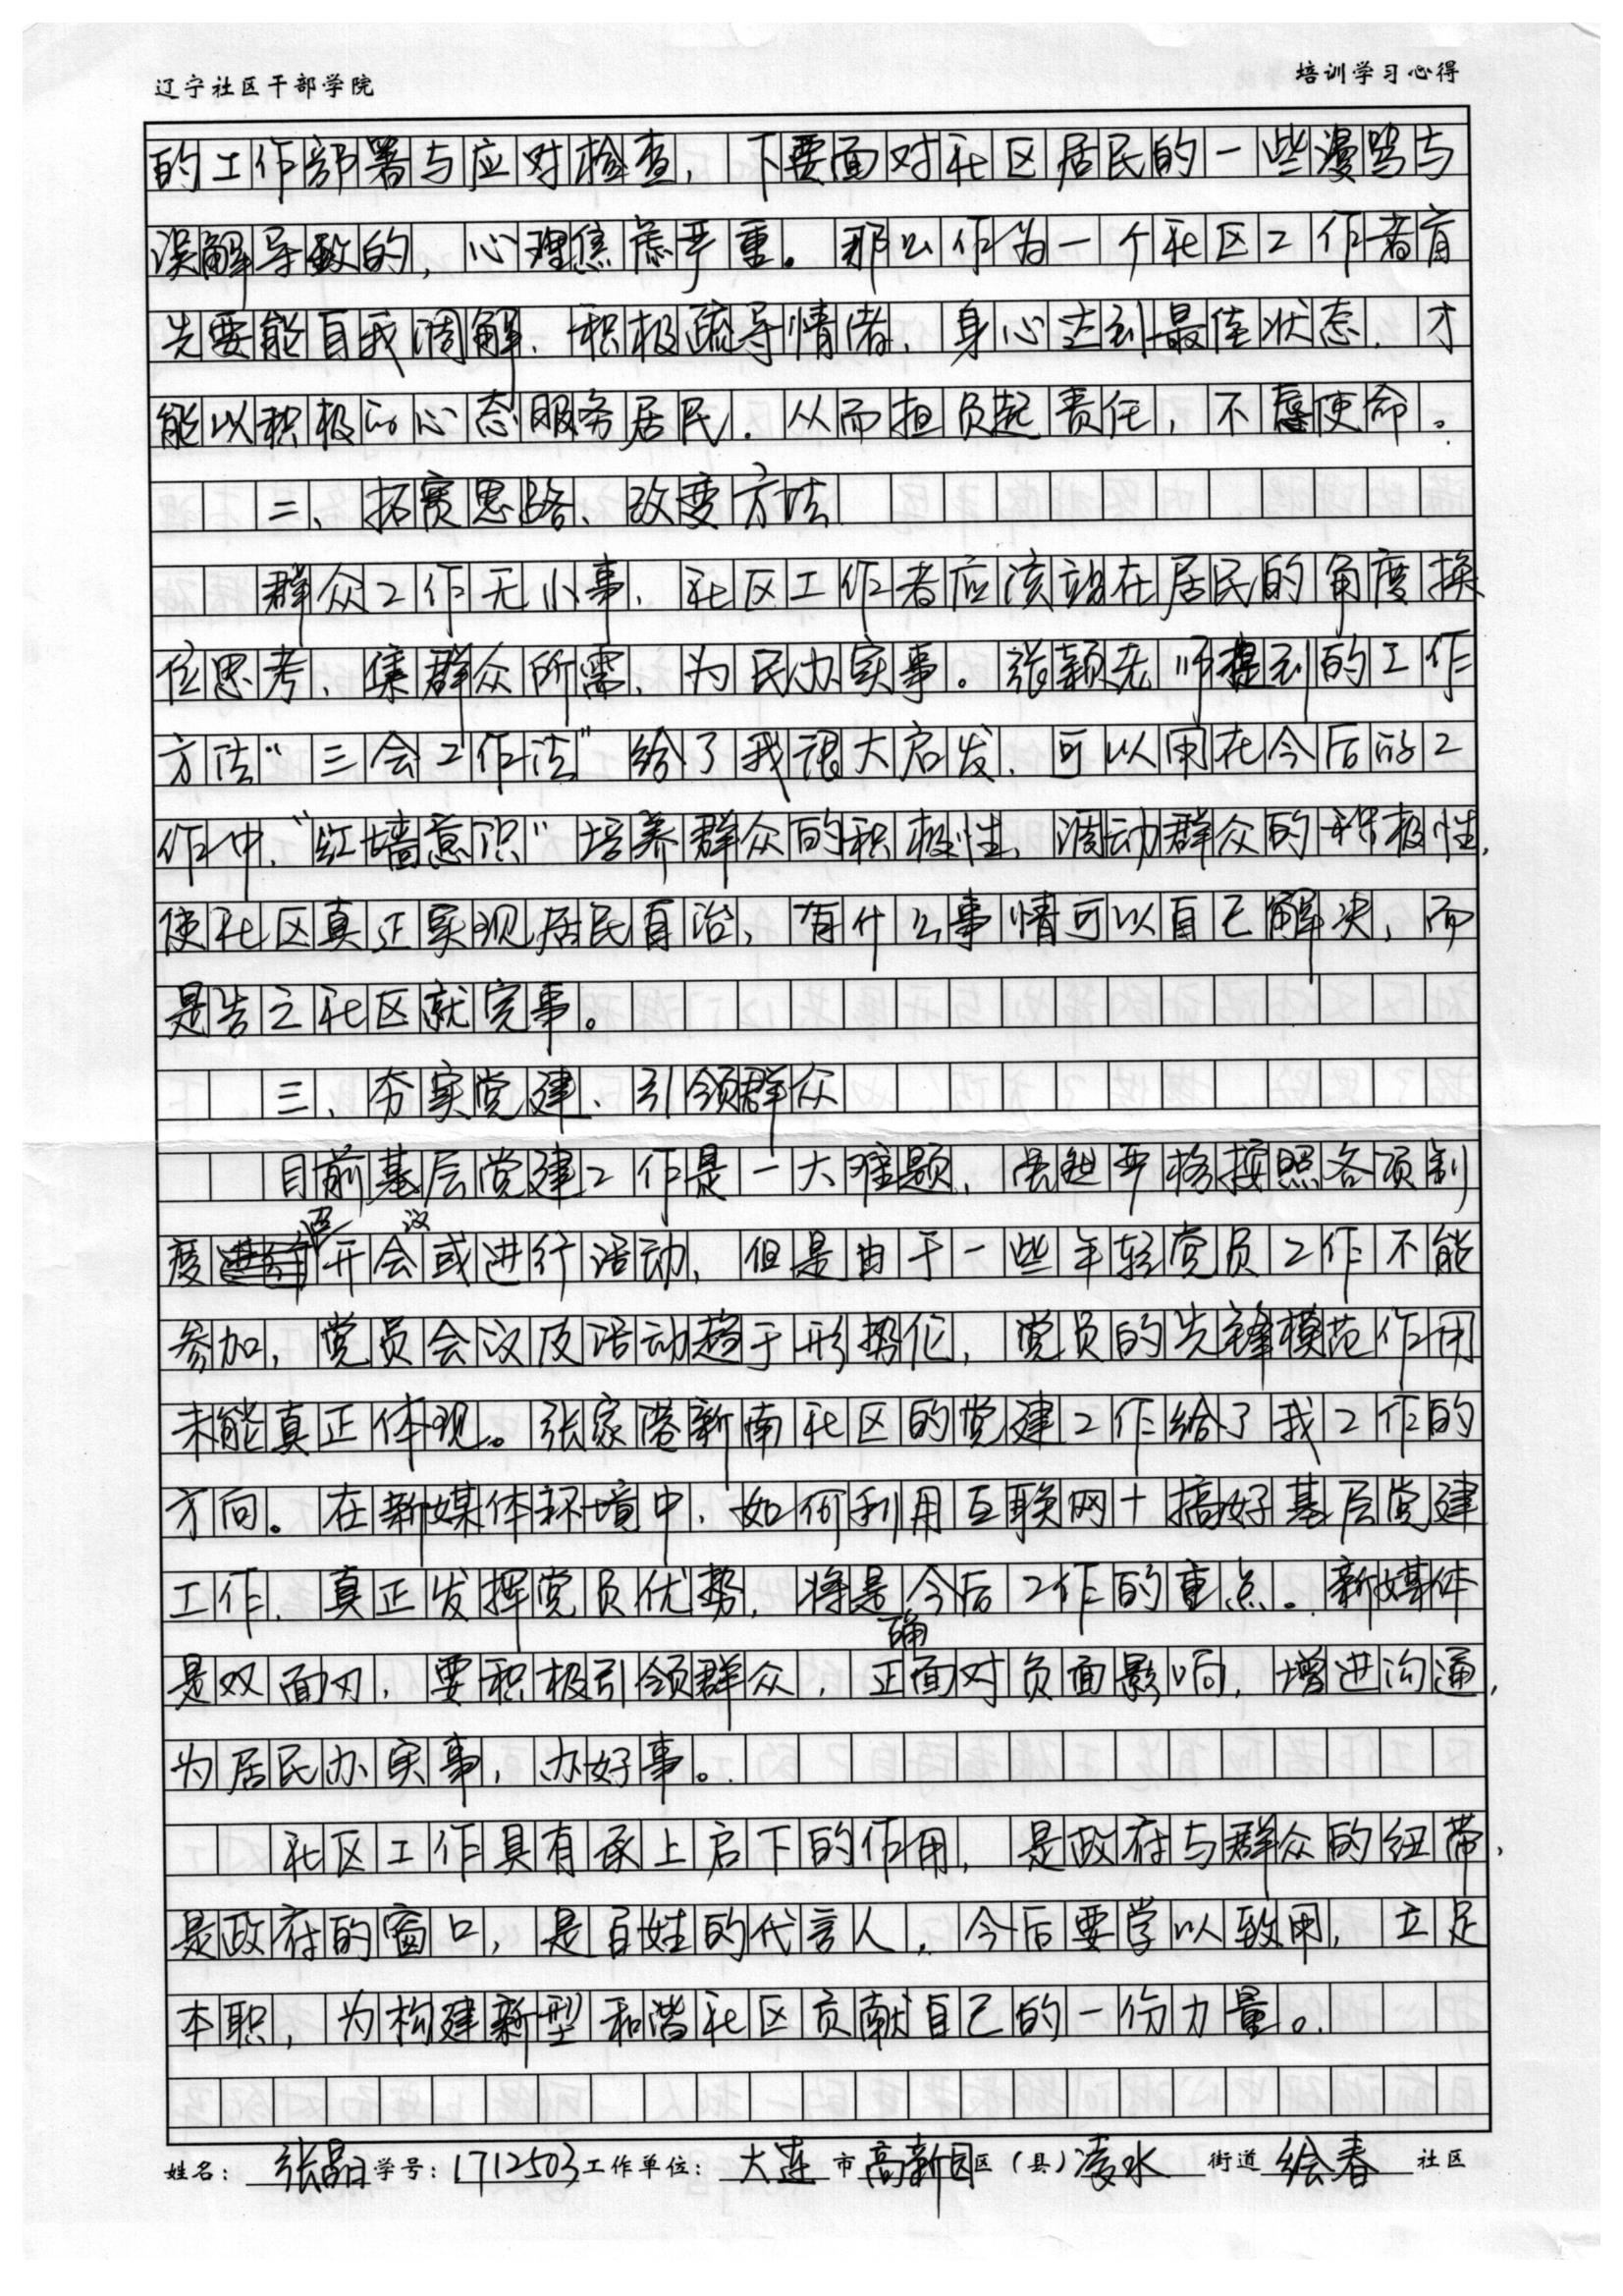 辽宁社区干部学院
培训学习心得
的工作部署与应对检查，下要面对社区居民的一些漫骂与
误解导致的，心理焦虑严重。那么作为一个社区工作者首
先要能自我调解，积极疏导情绪，身心达到最佳状态，才
能以积极的心态服务居民，从而担负起责任，不辱使命。
二、拓宽思路、改变方法
群众工作无小事，社区工作者应该站在居民的角度换
位思考，集群众所需，为民办实事。张颖老师提到的工作
方法“三会工作法”给了我很大启发，可以用在今后的工
作中，“红墙意识”培养群众的积极性，调动群众的积极性，
使社区真正实现居民自治，有什么事情可以自己解决，而
是告之社区就完事。
三、夯实党建、引领群众
目前基层党建工作是一大难题，虽然严格按照各项制
度召开会议或进行活动，但是由于一些年轻党员工作不能
参加，党员会议及活动趋于形势化，党员的先锋模范作用
未能真正体现。张家港新南社区的党建工作给了我工作的
方向。在新媒体环境中，如何利用互联网+搞好基层党建
工作，真正发挥党员优势，将是今后工作的重点。新媒体
是双面刃，要积极引领群众，正确面对负面影响，增进沟通，
为居民办实事，办好事。
社区工作具有承上启下的作用，是政府与群众的纽带，
是政府的窗口，是百姓的代言人，今后要学以致用，立足
本职，为构建新型和谐社区贡献自己的一份力量。
姓名：张晶 学号：1712503 工作单位：大连市高新园区（县）凌水街道绘春社区